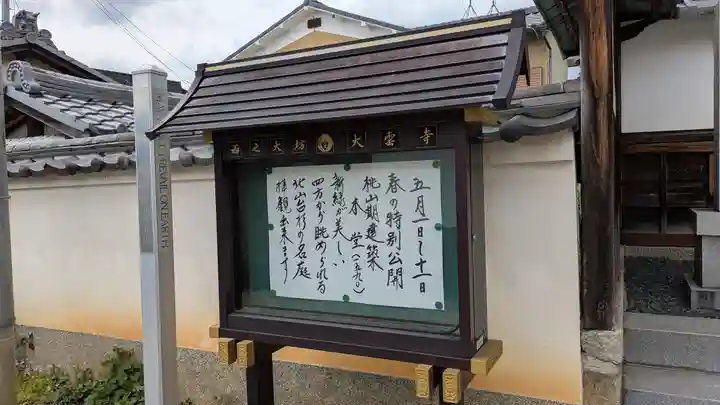 西之大坊 大雲寺
五月一日〜十一日
春の特別公開
桃山期建築
本堂(一五九〇)
新緑が美しい
四方から眺められる
北山台杉の名庭
拝観出来ます
PREVAIL ON EARTH